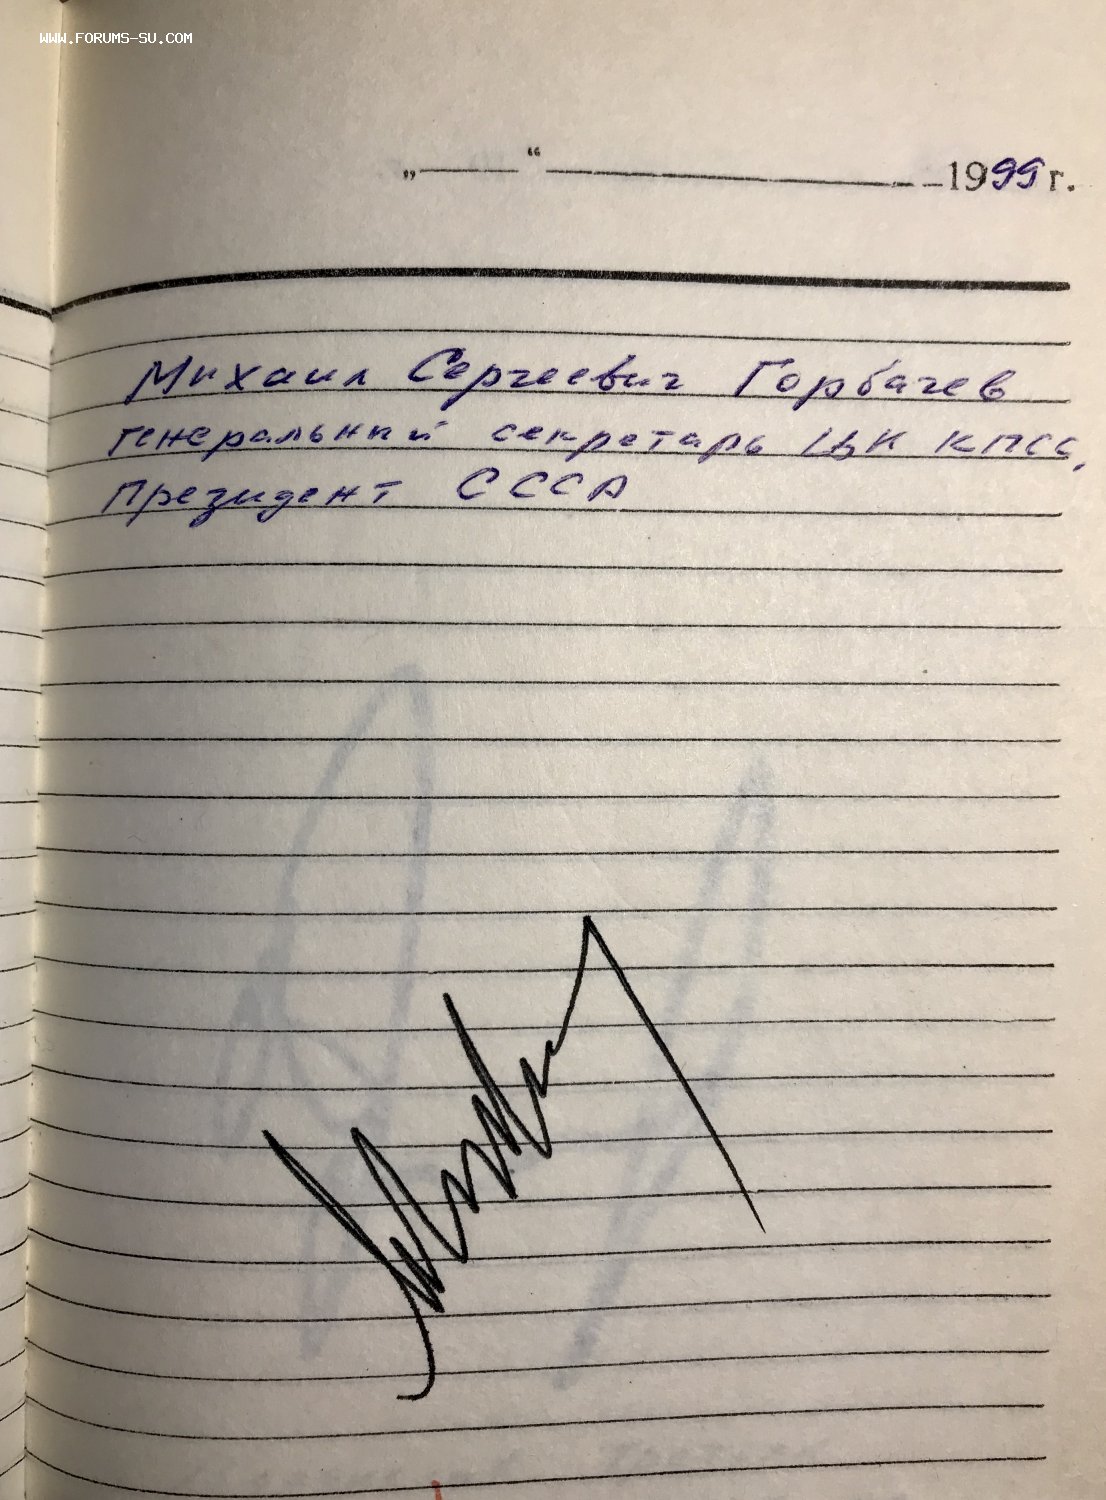 WWW.FORUMS-SU.COM
„———“ ——————— 1999 г.
Михаил Сергеевич Горбачев
генеральный секретарь ЦК КПСС,
президент СССР